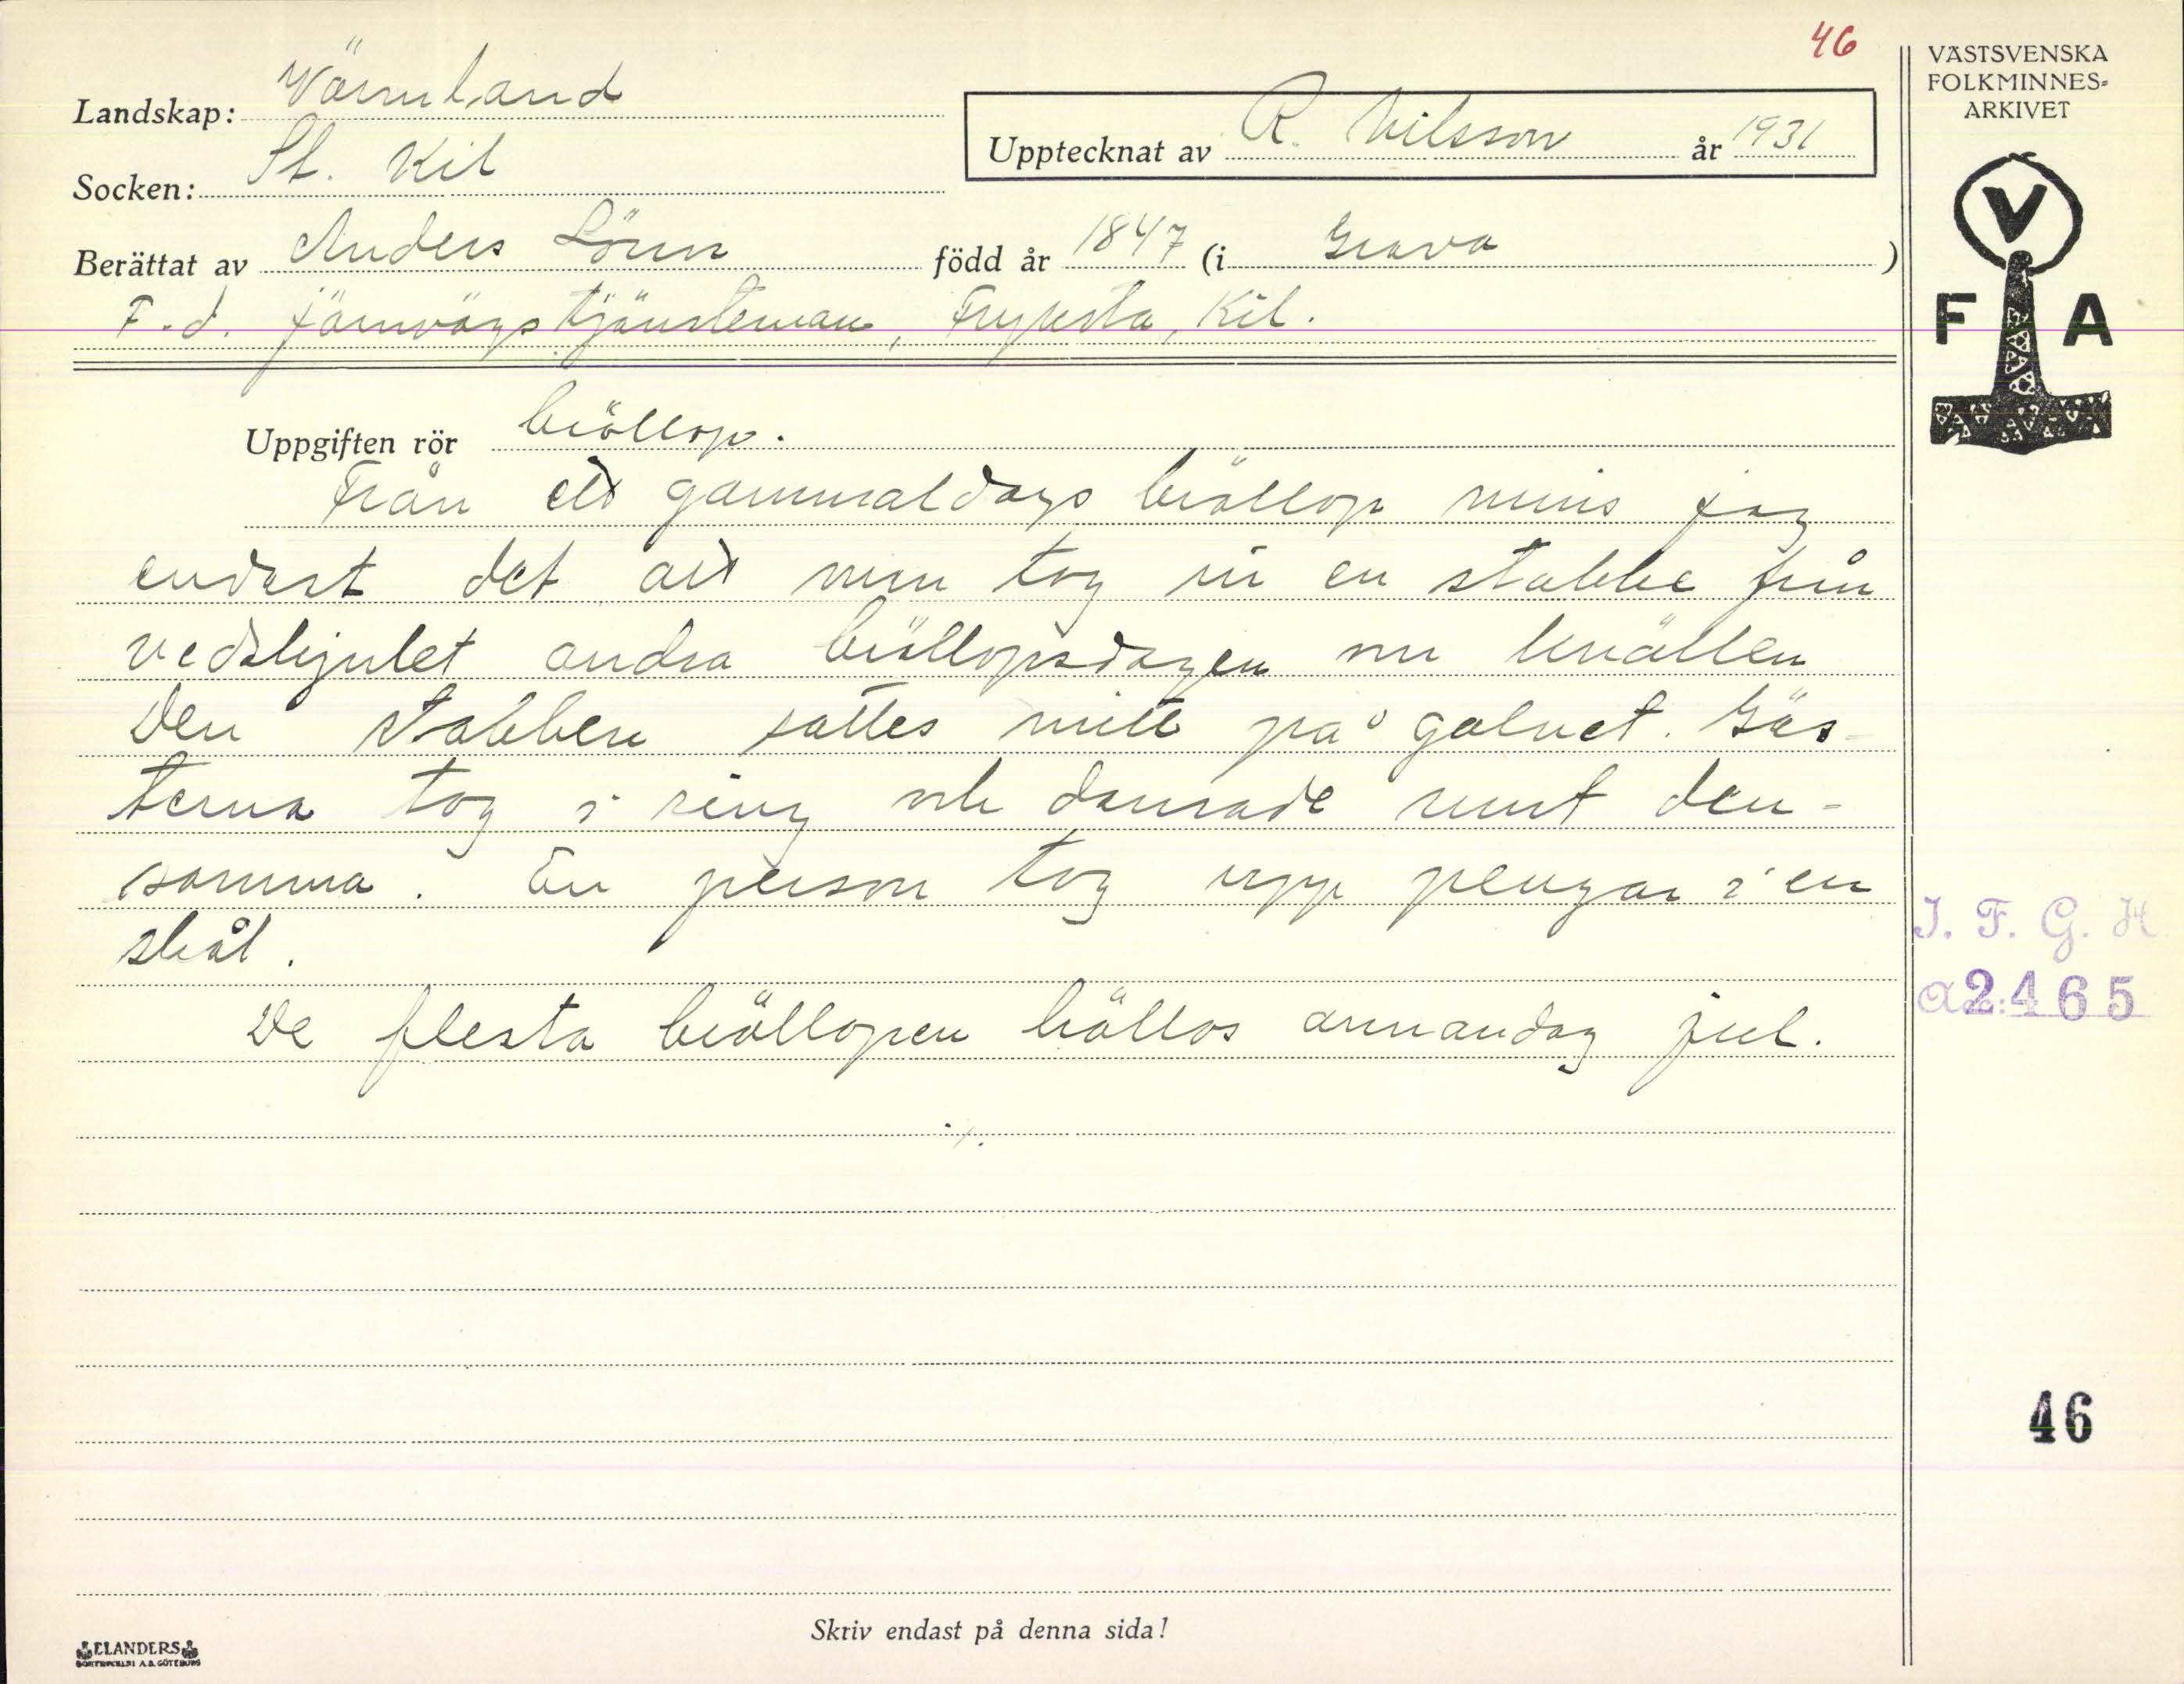 46
VÄSTSVENSKA
FOLKMINNES-
ARKIVET
Landskap: Värmland
Upptecknat av R. Nilsson år 1931
Socken: St. Kil
Berättat av Anders Lönn född år 1847 (i Grava )
F.d. järnvägstjänsteman, Fryksta, Kil.
V
F A
Uppgiften rör bröllop.
Från ett gammaldags bröllop minns jag
endast det att man tog in en stabbe från
vedskjulet andra bröllopsdagen om kvällen
Den stabben sattes mitt på golvet. Gäs-
terna tog i ring och dansade runt den-
samma. En person tog upp pengar i en
skål.
De flesta bröllopen höllos annandag jul.
./.
I. F. G. H
a2465
46
Skriv endast på denna sida!
ELANDERS
BOKTRYCKERI A.B. GÖTEBORG